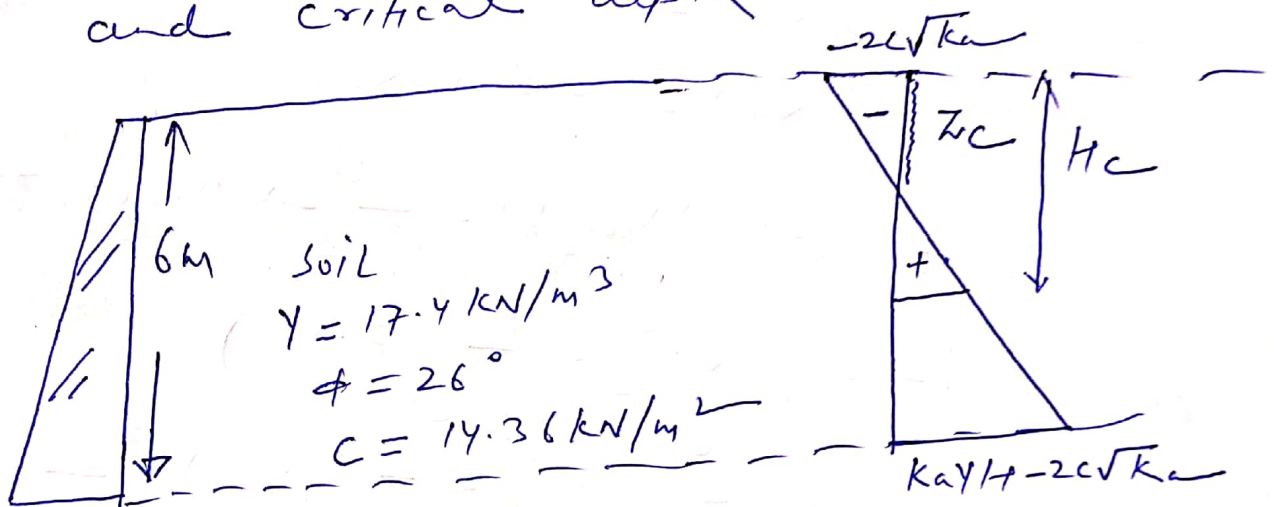 and critical
-2c√Ka
Zc
Hc
-
6m
soil
+
γ = 17.4 kN/m³
φ = 26°
c = 14.36 kN/m²
KaγH-2c√Ka